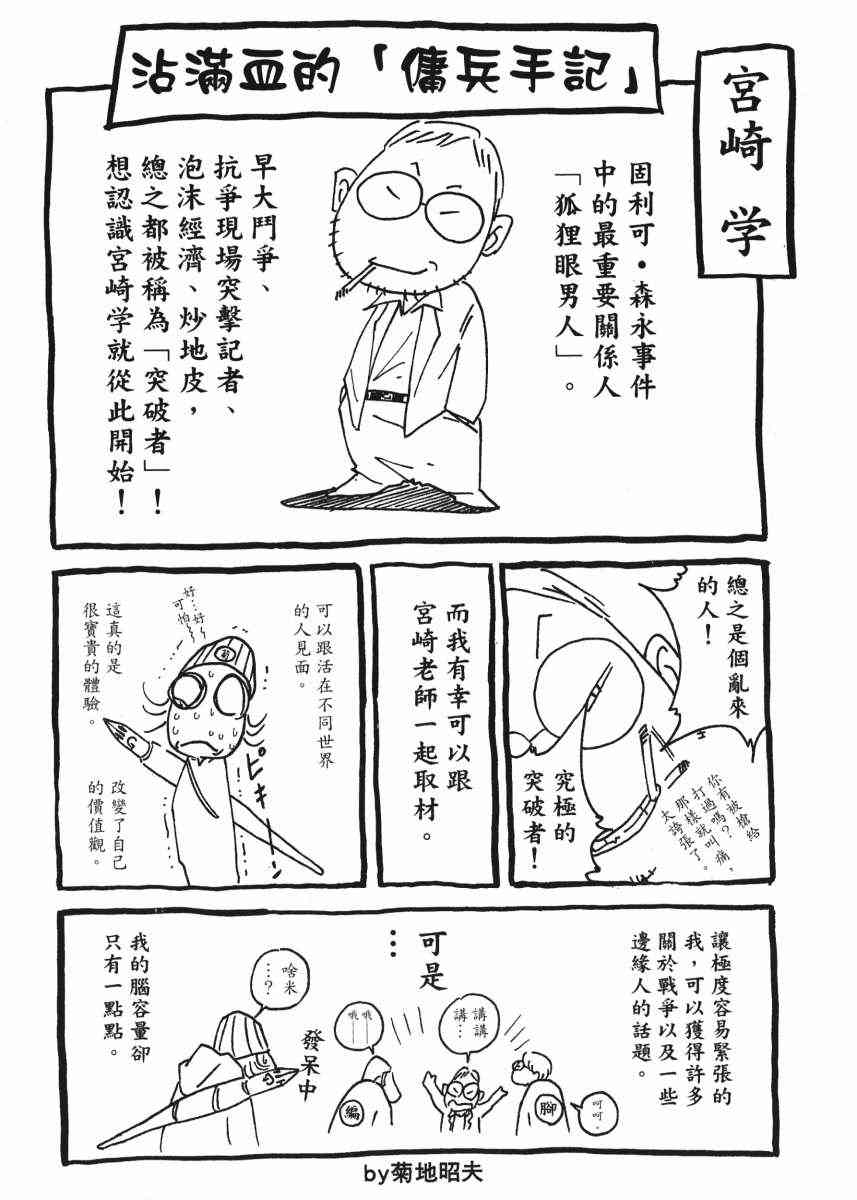 沾滿血的「傭兵手記」
宮崎 学
固利可・森永事件
中的最重要關係人
「狐狸眼男人」。
早大鬥爭、
抗爭現場突擊記者、
泡沫經濟、炒地皮，
總之都被稱為「突破者」！
想認識宮崎学就從此開始！
總之是個亂來
的人！
究極的
突破者！
你有被槍給
打過嗎？痛，
那樣就叫痛，
太誇張了。
而我有幸可以跟
宮崎老師一起取材。
可以跟活在不同世界
的人見面。
好…好
可怕
菊
ピキー
G
這真的是
很寶貴的體驗。
改變了自己
的價值觀。
讓極度容易緊張的
我，可以獲得許多
關於戰爭以及一些
邊緣人的話題。
講講
講…
腳
呵呵。
可是
…
哦哦
編
啥米
…？
G
發呆中
我的腦容量卻
只有一點點。
by菊地昭夫